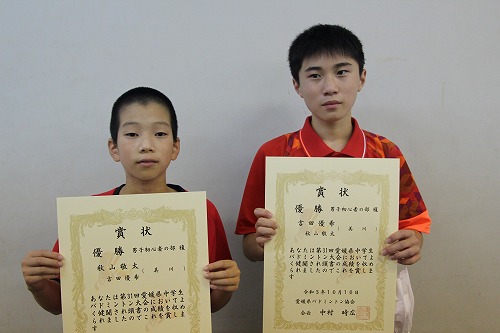 賞状
優勝 男子初心者の部 複
秋山敬太
(美川)
吉田優希
あなたは第31回愛媛県中学生
バドミントン大会においてよ
く健闘され頭書の成績を収め
賞状
優勝 男子初心者の部 複
吉田優希
(美川)
秋山敬太
あなたは第31回愛媛県中学生
バドミントン大会においてよ
く健闘され頭書の成績を収め
令和5年10月10日
愛媛県バドミントン協会
会長 中村時広